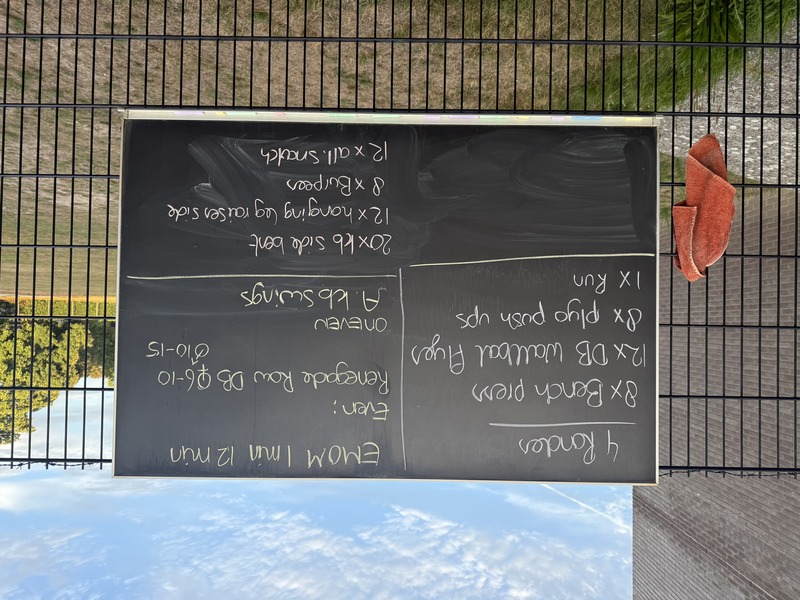 4 Rondes
8x Bench press
12x DB Wallbal Flyes
8x plyo push ups
1x Run
EMOM 1 min 12 min
Even:
Renegade Row DB ♀6-10
♂10-15
oneven
A. kb Swings
20x kb side bent
12x hanging leg raises side
8x Burpees
12x alt. snatch